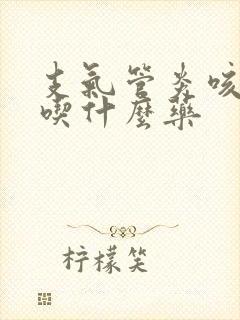 支氣管炎咳
喫什麼藥
柠檬笑